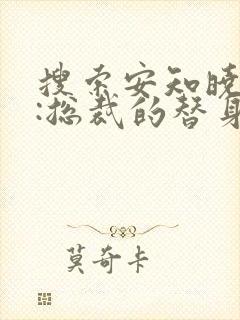 搜索安知晓
:总裁的替身
莫奇卡